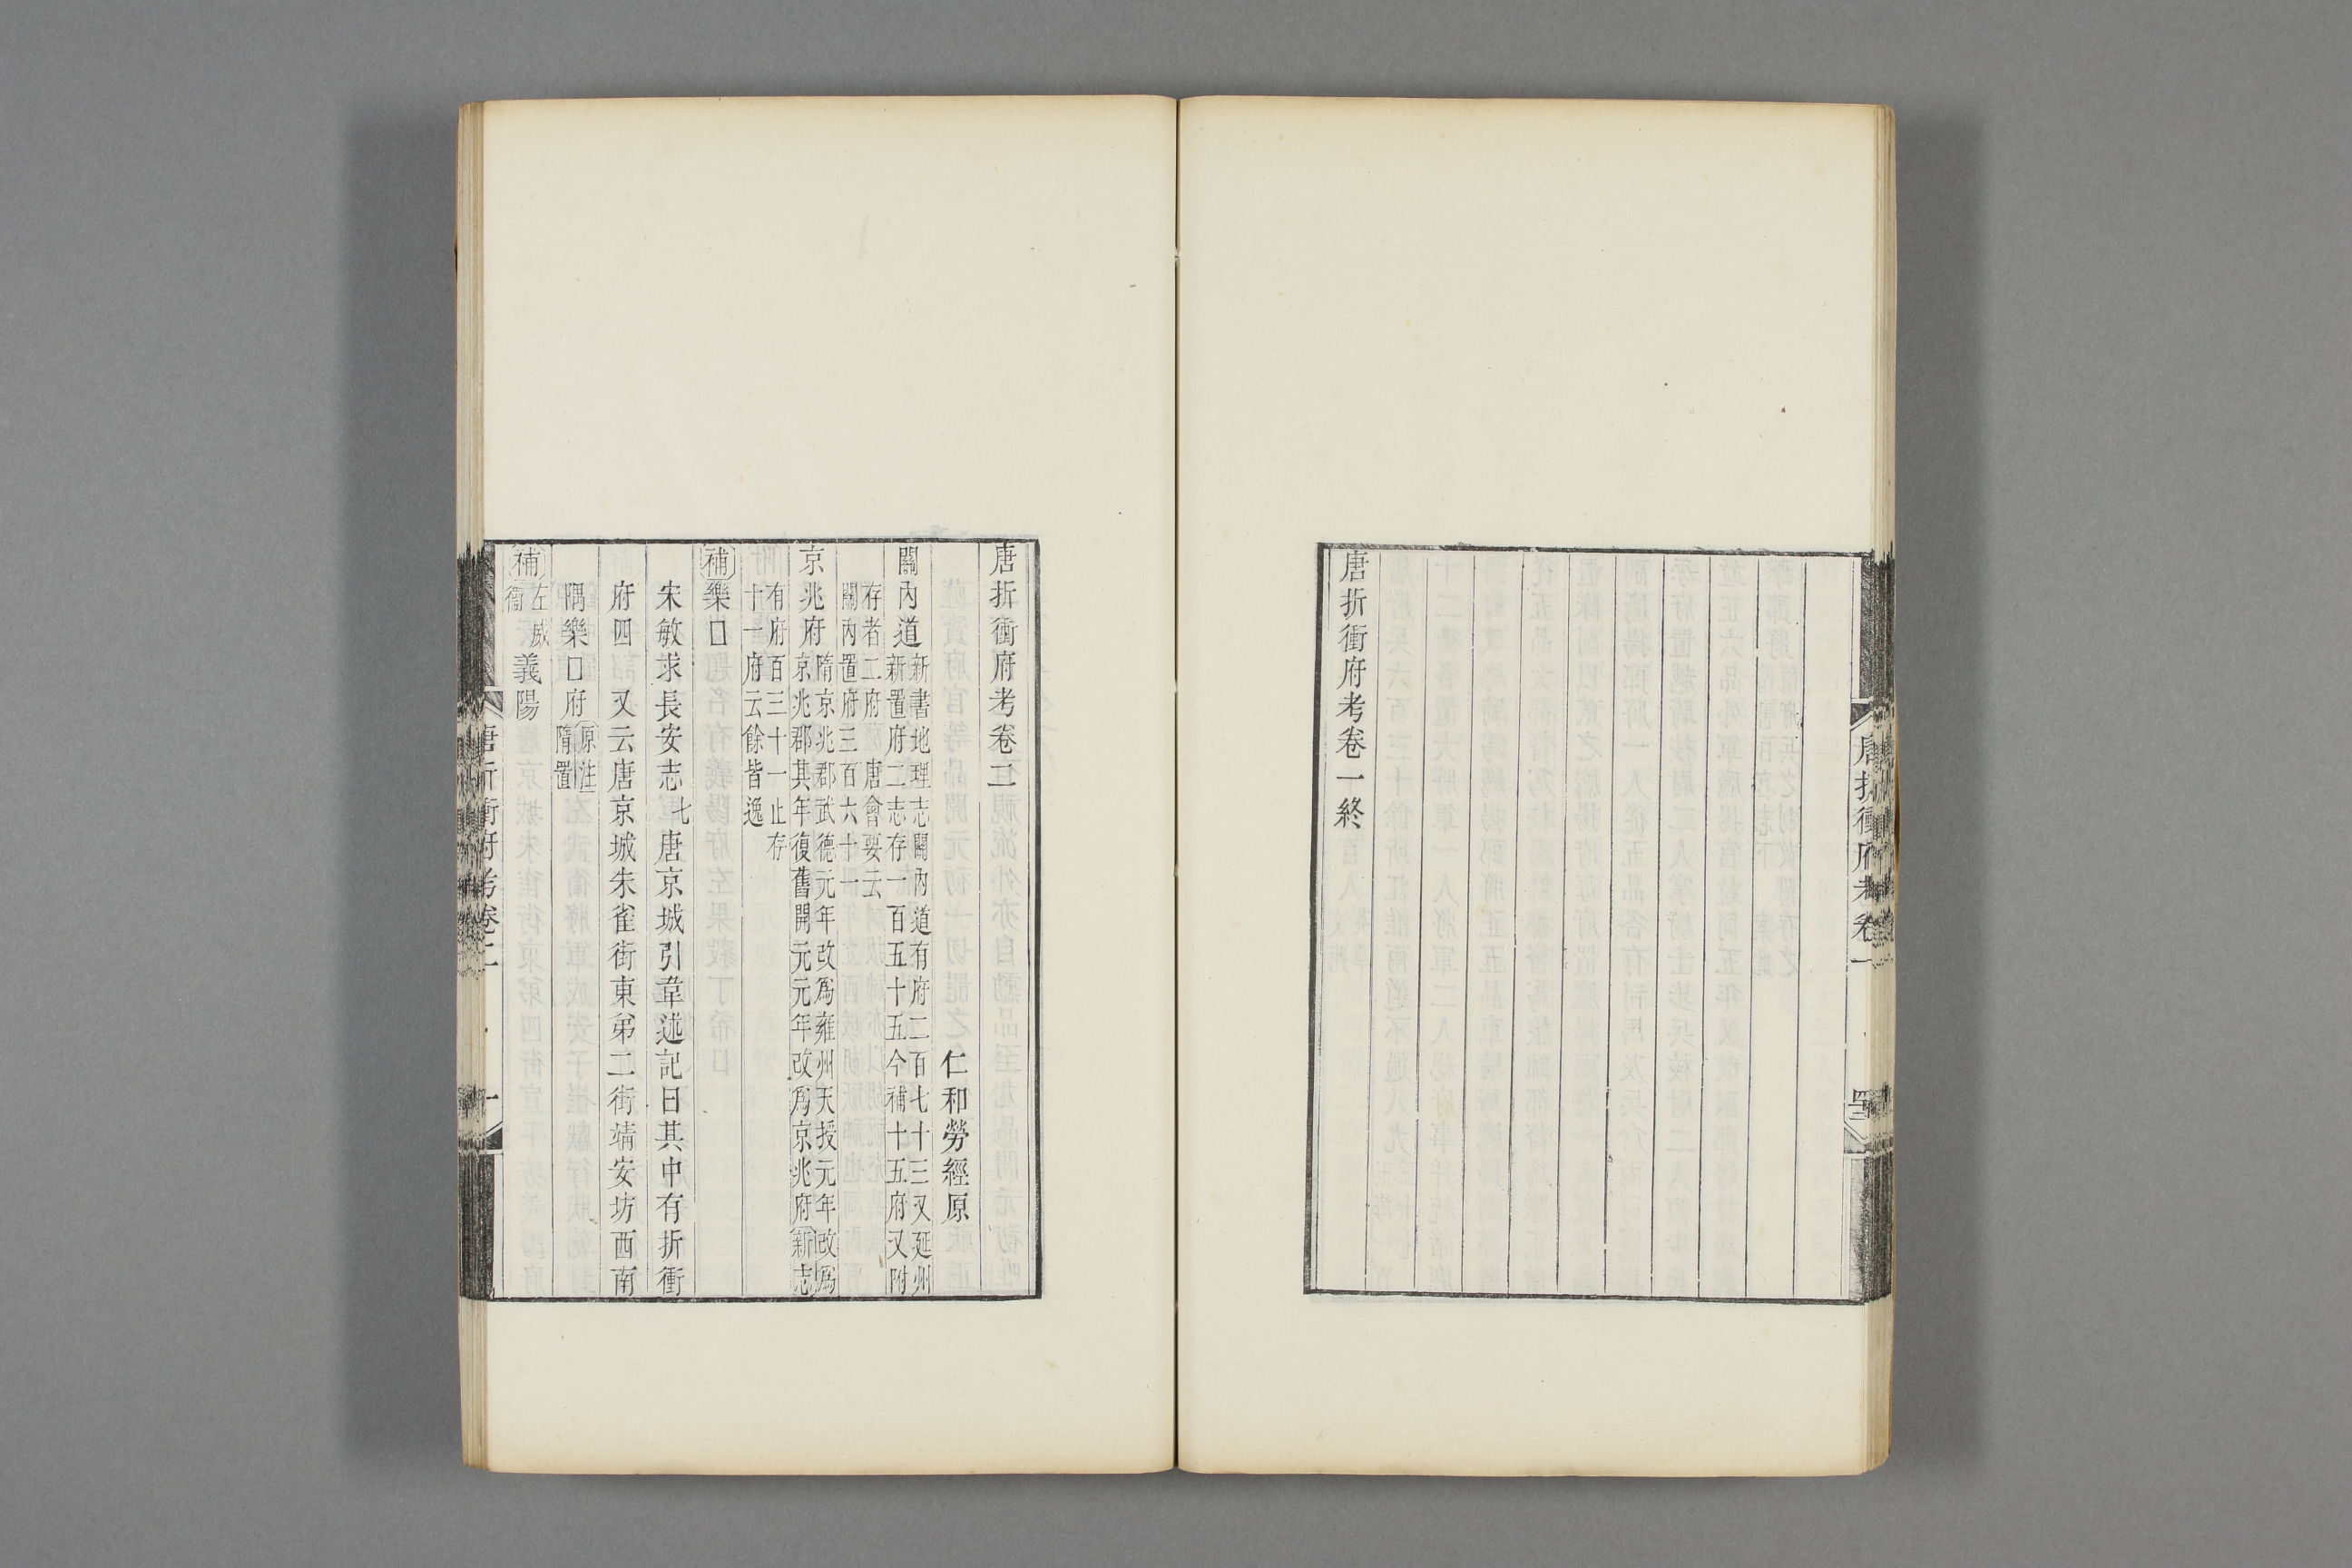 唐折衝府考卷一終
唐折衝府考卷二
仁和勞經原
關內道新書地理志關內道有府二百七十三又延州新置府二志存一百五十五今補十五府又附
存者二府 唐會要云關內置府三百六十一
京兆府隋京兆郡武德元年改爲雍州天授元年改爲京兆郡其年復舊開元元年改爲京兆府新志
有府百三十一止存十一府云餘皆逸
補樂□
宋敏求長安志七唐京城引韋述記曰其中有折衝
府四 又云唐京城朱雀街東弟二街靖安坊西南
隅樂□府原注隋置
補左威衞義陽
唐折衝府考卷二
一